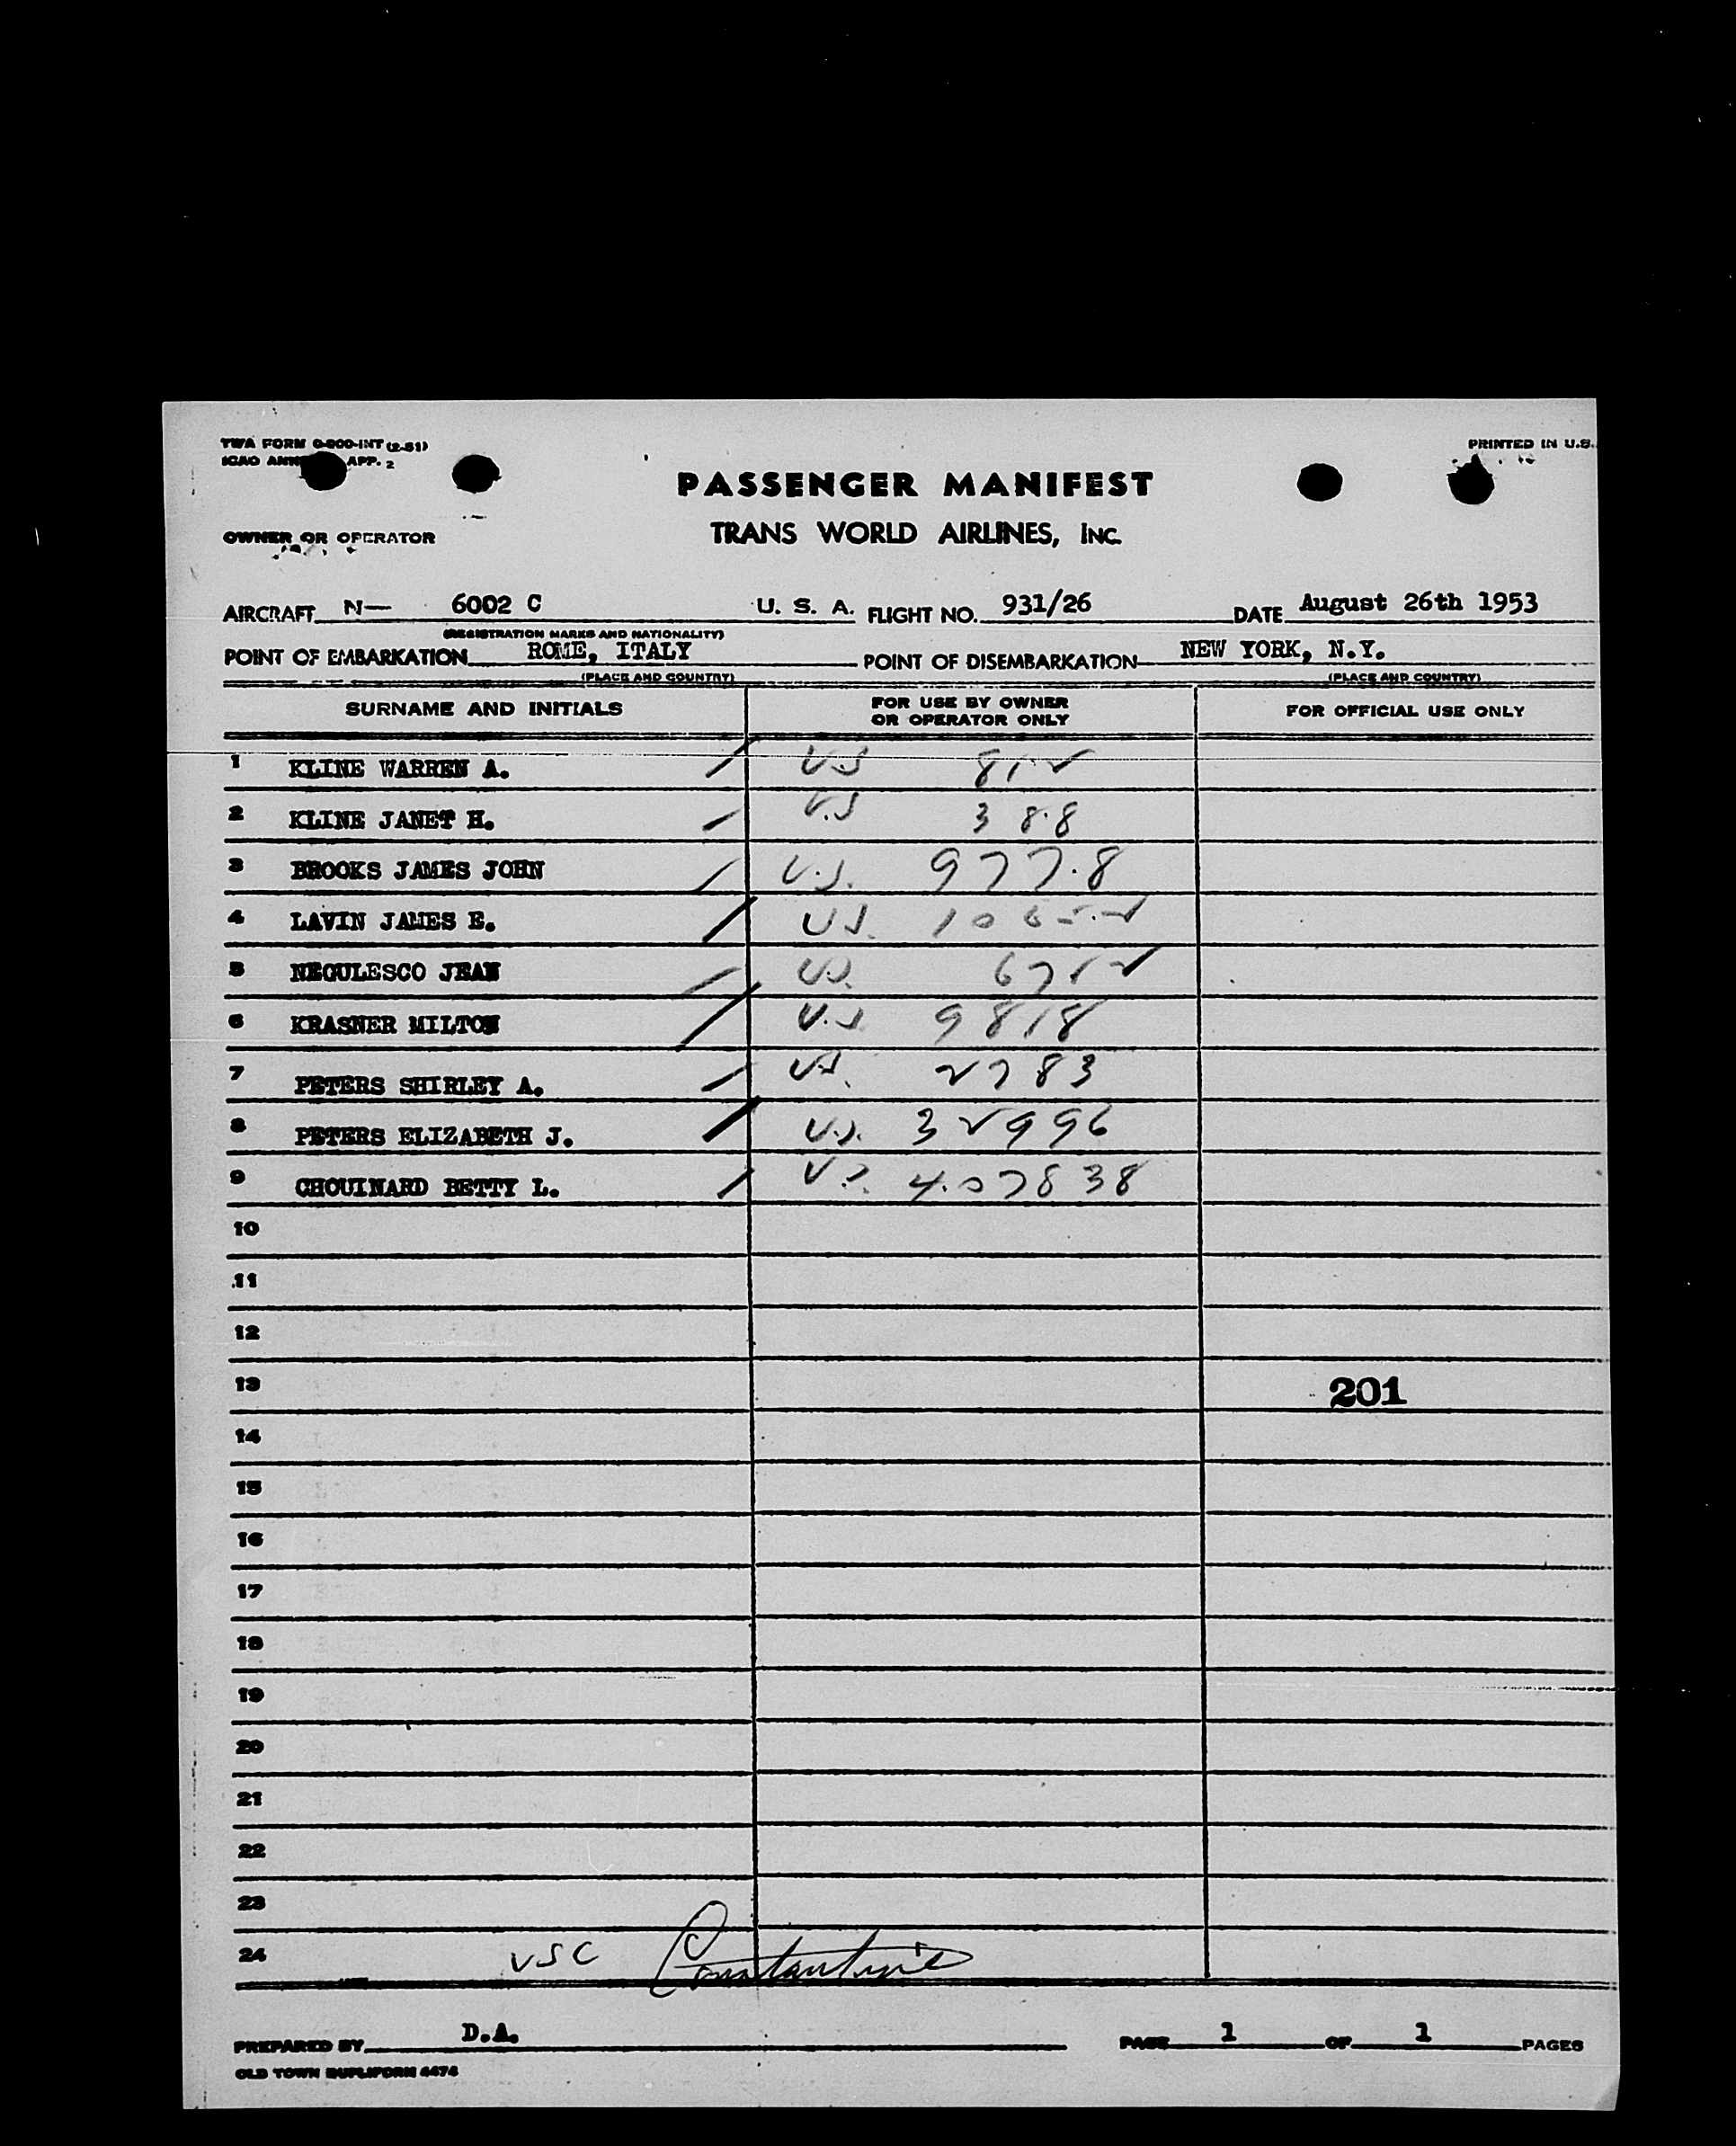 TWA FORM O-900-INT (2-51)
PRINTED IN U.S.
ICAO APP. 2
PASSENGER MANIFEST
OWNER OR OPERATOR
TRANS WORLD AIRLINES, INC.
AIRCRAFT N— 6002 C U. S. A. FLIGHT NO. 931/26 DATE August 26th 1953
(REGISTRATION MARKS AND NATIONALITY)
POINT OF EMBARKATION ROME, ITALY POINT OF DISEMBARKATION NEW YORK, N.Y.
(PLACE AND COUNTRY) (PLACE AND COUNTRY)
SURNAME AND INITIALS FOR USE BY OWNER OR OPERATOR ONLY FOR OFFICIAL USE ONLY
1 KLINE WARREN A. U.S 812
2 KLINE JANET H. U.S 388
3 BROOKS JAMES JOHN U.S. 9778
4 LAVIN JAMES E. U.S.
5 NEGULESCO JEAN U.S.
6 KRASNER MILTON U.S 9818
7 PETERS SHIRLEY A. U.S. 2783
8 PETERS ELIZABETH J. U.S. 32996
9 CHOUINARD BETTY L. U.S. 407838
10
11
12
13 201
14
15
16
17
18
19
20
21
22
23
24 USC Constantine
PREPARED BY D.A. PAGE 1 OF 1 PAGES
OLD TOWN DUPLIFORM 4474